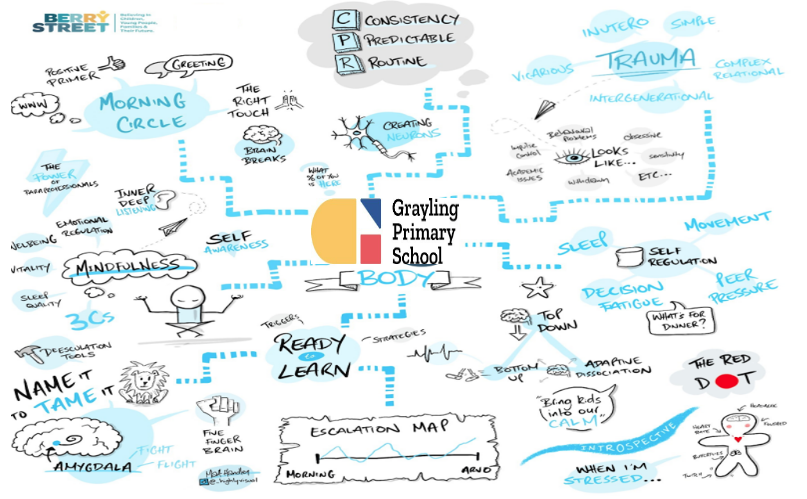 BERRY
STREET
Believing in
Children,
Young People,
Families &
Their Future.
C CONSISTENCY
P PREDICTABLE
R ROUTINE
INUTERO
SIMPLE
VICARIOUS
TRAUMA
COMPLEX
RELATIONAL
INTERGENERATIONAL
POSITIVE
PRIMER
GREETING
WWW
MORNING
CIRCLE
THE
RIGHT
TOUCH
BRAIN
BREAKS
CREATING
NEURONS
Impulse
Control
Behavioural
Problems
obsessive
LOOKS
LIKE...
sensitivity
ACADEMIC
ISSUES
withdrawn
ETC...
THE
POWER
OF
PARAPROFESSIONALS
INNER
DEEP
LISTENING
WHAT
% OF YOU
IS HERE
Grayling
Primary
School
EMOTIONAL
REGULATION
SELF
AWARENESS
MINDFULNESS
VITALITY
SLEEP
QUALITY
3Cs
BODY
SLEEP
MOVEMENT
SELF
REGULATION
DECISION
FATIGUE
PEER
PRESSURE
WHAT'S FOR
DINNER?
TRIGGERS
READY
to
LEARN
STRATEGIES
TOP
DOWN
BOTTOM
UP
ADAPTIVE
DISSOCIATION
DEESCULATION
TOOLS
NAME IT
TO TAME IT
FIVE
FINGER
BRAIN
AMYGDALA
FIGHT
FLIGHT
ESCALATION MAP
MORNING
ARVO
"Bring kids
into our
CALM"
THE RED
DOT
INTROSPECTIVE
WHEN I'M
STRESSED...
HEADACHE
FLUSHED
HEART
RATE
BUTTERFLIES